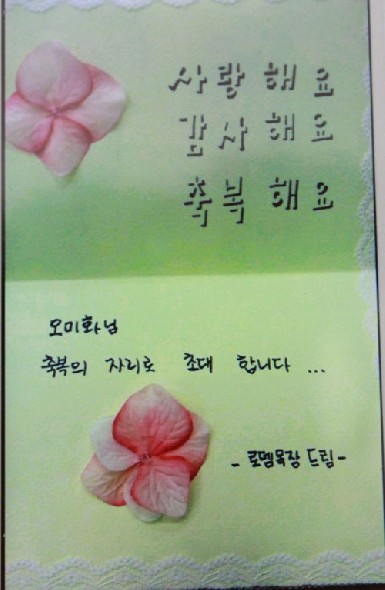 사랑해요
감사해요
축복해요
오미화님
축복의 자리로 초대 합니다 ...
- 로뎀목장 드림 -